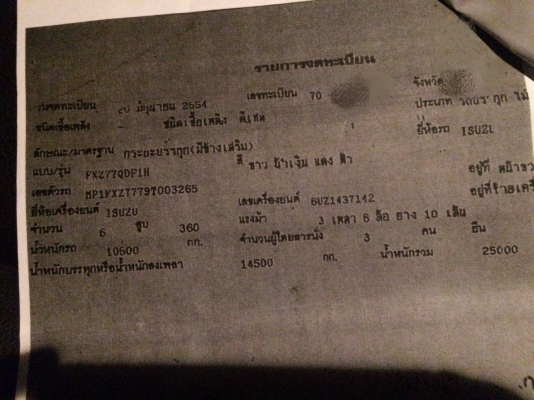 รายการจดทะเบียน
วันจดทะเบียน 20 มิถุนายน 2554 เลขทะเบียน 70 จังหวัด
ชนิดเชื้อเพลิง ชนิดเชื้อเพลิง ดีเซล ประเภท รถบรรทุก ไม่
ลักษณะ/มาตรฐาน กระบะบรรทุก(มีข้างเสริม) ยี่ห้อรถ ISUZU
แบบ/รุ่น FXZ77QDF1H สี ขาว น้ำเงิน แดง ฟ้า
เลขตัวรถ MP1FXZ77797003265 อยู่ที่
ยี่ห้อเครื่องยนต์ ISUZU เลขเครื่องยนต์ 6UZ1437142 อยู่ที่
จำนวน 6 สูบ 360 แรงม้า 3 เพลา 6 ล้อ ยาง 10 เส้น
น้ำหนักรถ 10500 กก. จำนวนผู้โดยสารนั่ง 3 คน ยืน
น้ำหนักบรรทุกหรือน้ำหนักลงเพลา 14500 กก. น้ำหนักรวม 25000